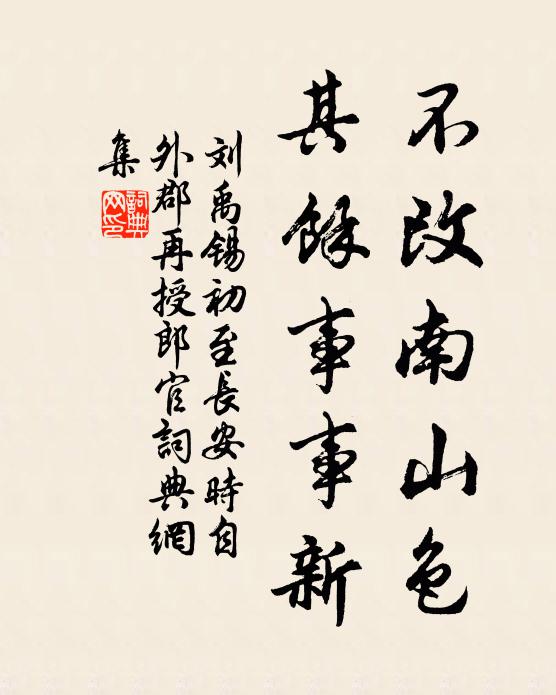 不改南山色
其餘事事新
刘禹锡初至長安時自
外郡再授郎官詞典網
集
詞典
网印